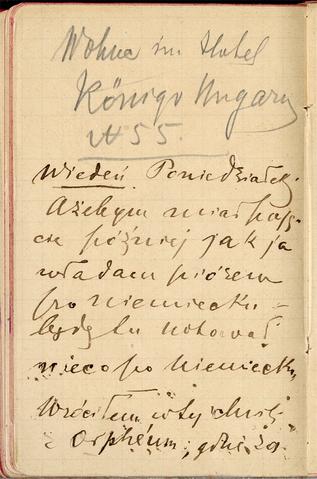 Wohne im Hotel
König v Ungarn
№ 55.
Wiedeń Poniedziałek.
Ażebym miał
później jak ja
władam piórem
po niemiecku –
będę tu notował
nieco po niemiecku
Wróciłem w tej chwili
z Orphéum, gdzie za